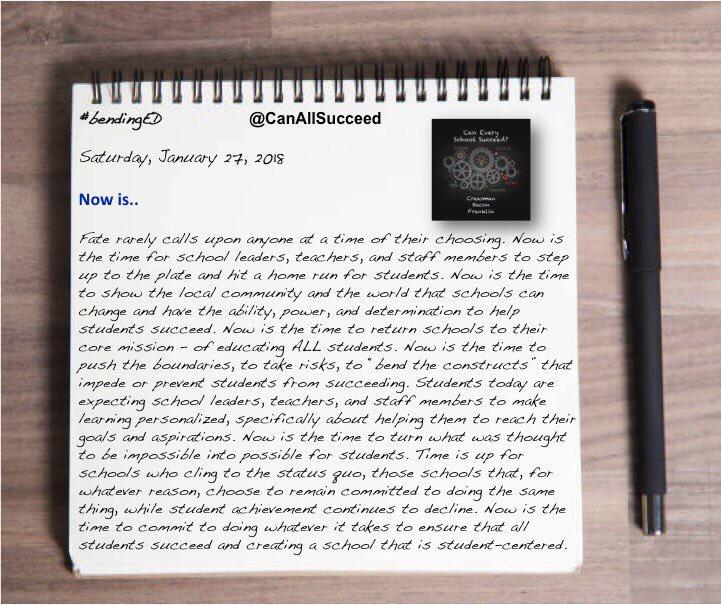 #bendingED
@CanAllSucceed
Can Every
School Succeed?
Creasman
Bacon
Franklin
Saturday, January 27, 2018
Now is..
Fate rarely calls upon anyone at a time of their choosing. Now is
the time for school leaders, teachers, and staff members to step
up to the plate and hit a home run for students. Now is the time
to show the local community and the world that schools can
change and have the ability, power, and determination to help
students succeed. Now is the time to return schools to their
core mission - of educating ALL students. Now is the time to
push the boundaries, to take risks, to "bend the constructs" that
impede or prevent students from succeeding. Students today are
expecting school leaders, teachers, and staff members to make
learning personalized, specifically about helping them to reach their
goals and aspirations. Now is the time to turn what was thought
to be impossible into possible for students. Time is up for
schools who cling to the status quo, those schools that, for
whatever reason, choose to remain committed to doing the same
thing, while student achievement continues to decline. Now is the
time to commit to doing whatever it takes to ensure that all
students succeed and creating a school that is student-centered.